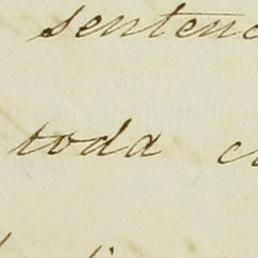 sentenc
toda c